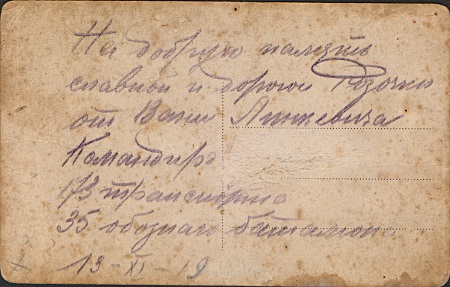 На добрую память
славной и дорогой Розочки
от Вани Янкевича
Командира
173 транспорта
35 обозного баталиона.
19-XI-19